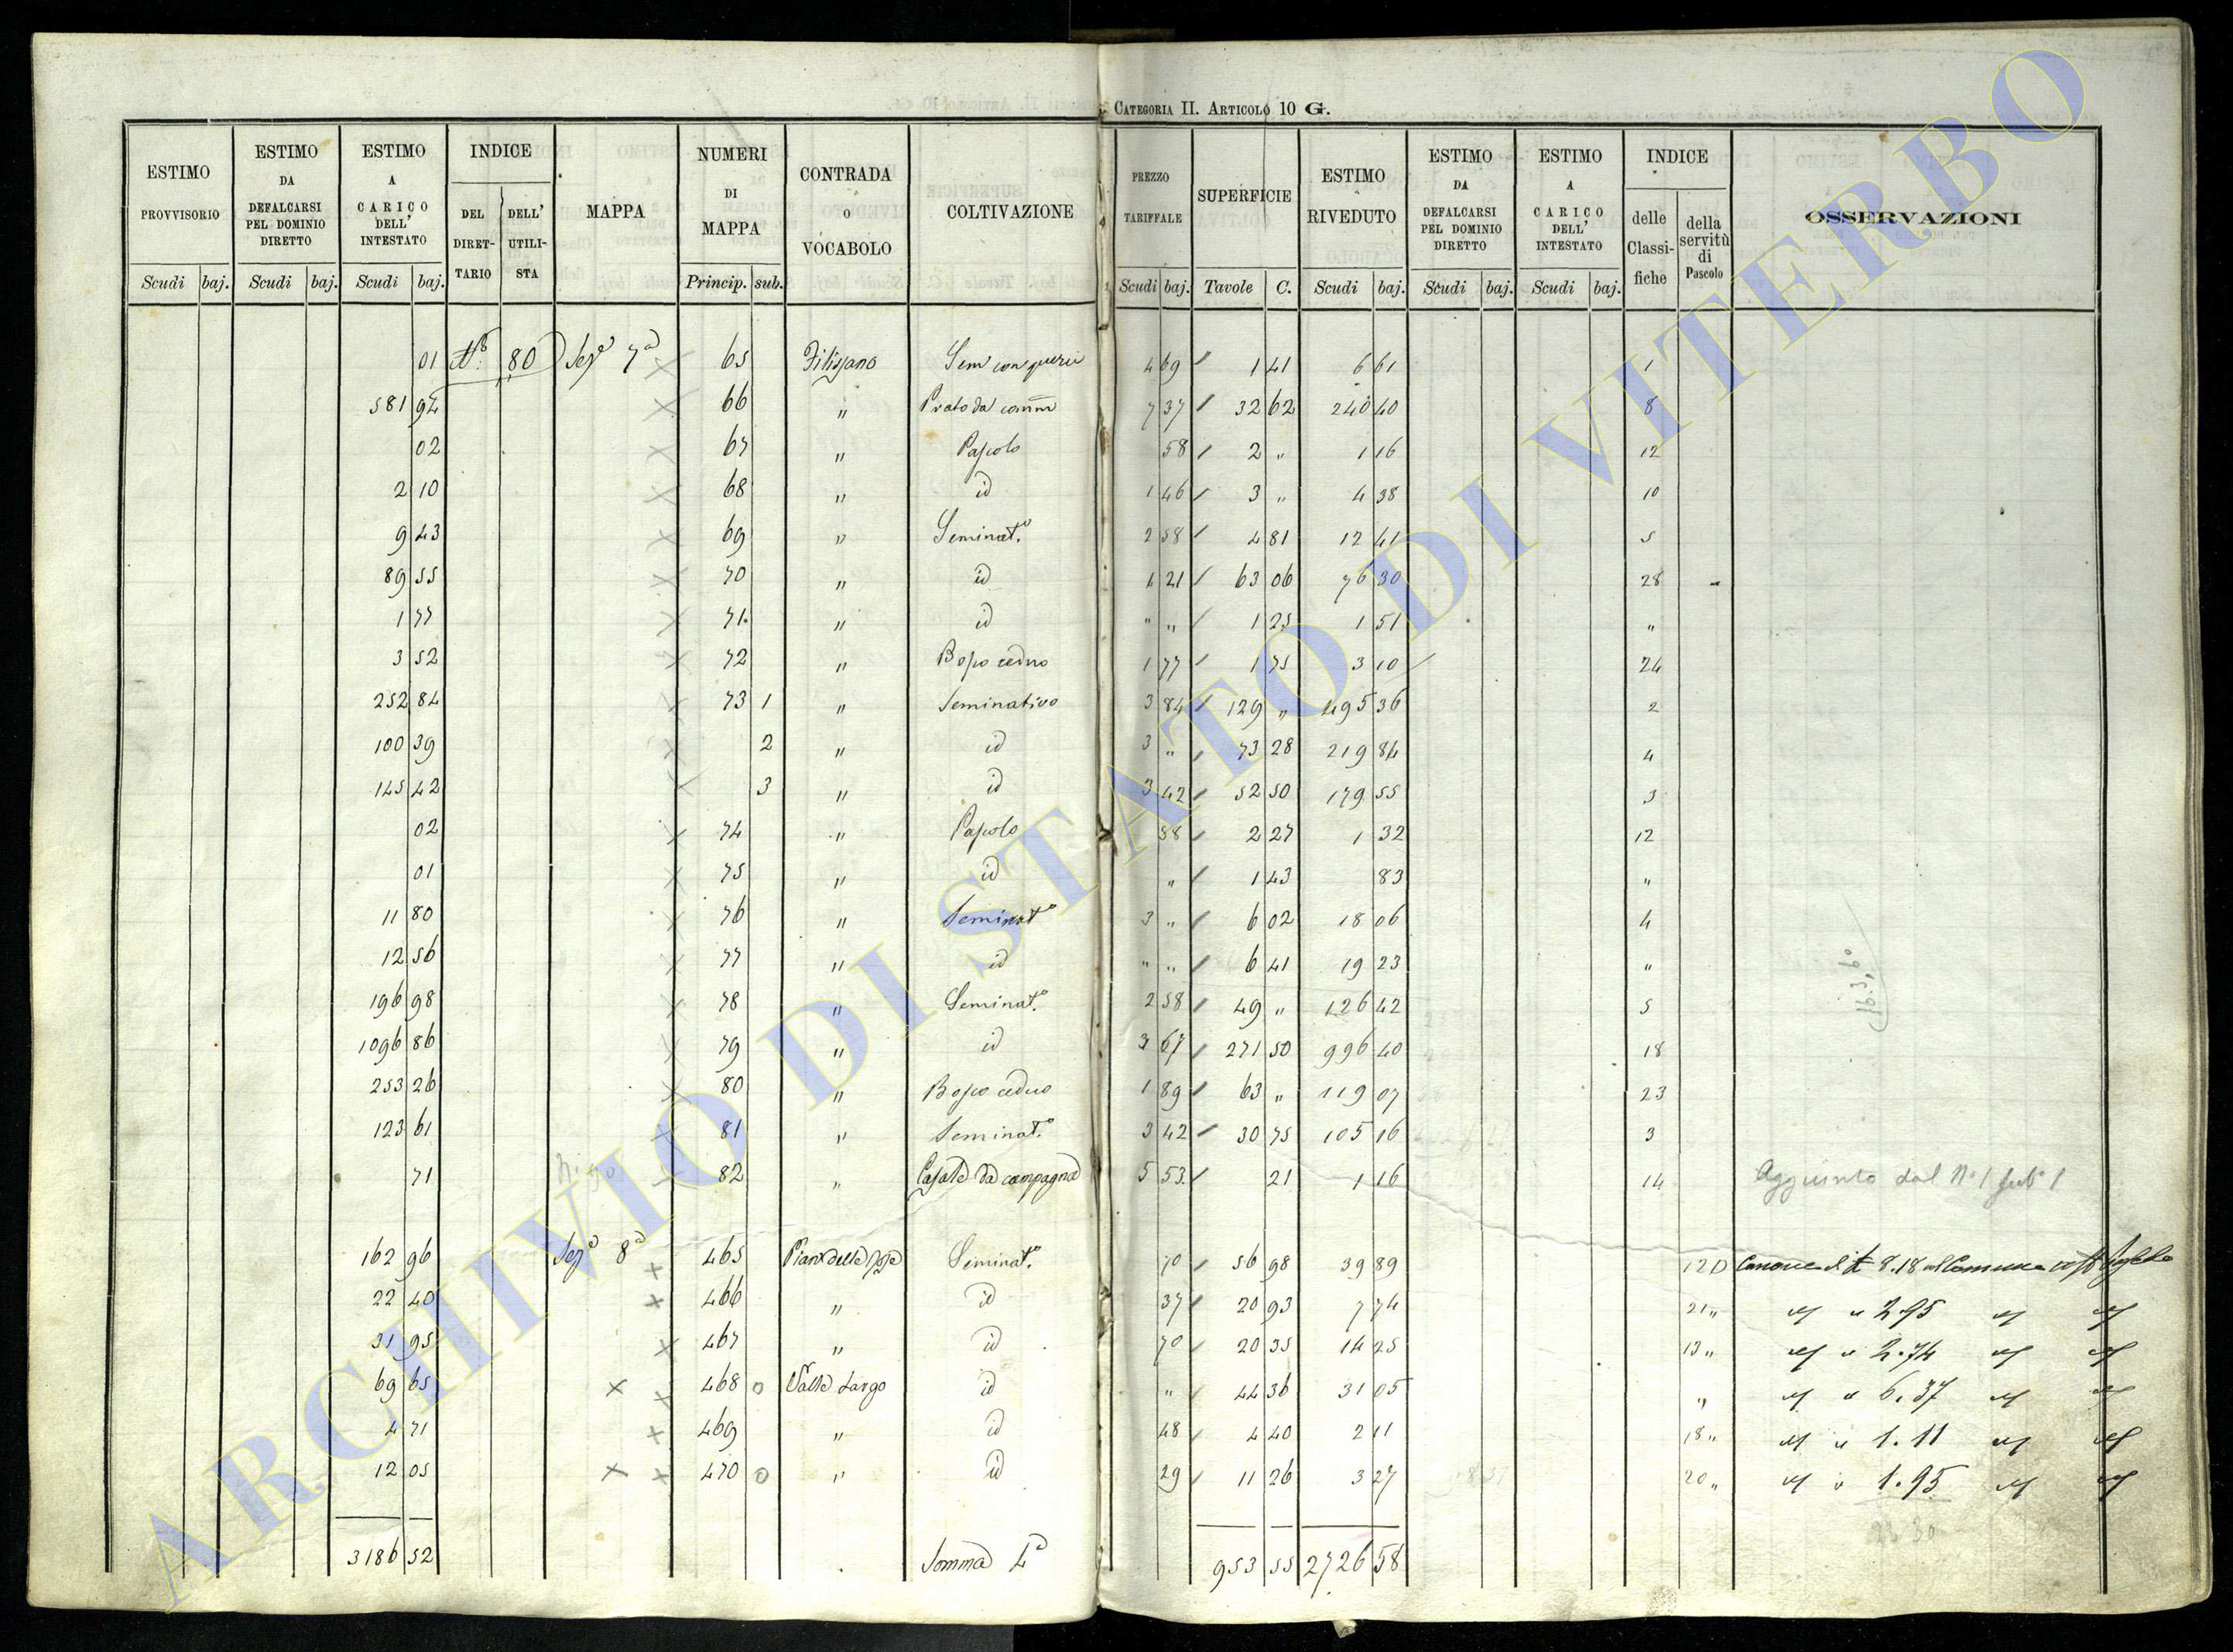 CATEGORIA II. ARTICOLO 10 G.
ESTIMO PROVVISORIO Scudi baj. ESTIMO DA DEFALCARSI PEL DOMINIO DIRETTO Scudi baj. ESTIMO A CARICO DELL' INTESTATO Scudi baj. INDICE DEL DIRETTARIO DELL' UTILISTA MAPPA NUMERI DI MAPPA Princip. sub. CONTRADA O VOCABOLO COLTIVAZIONE PREZZO TARIFFALE Scudi baj. SUPERFICIE Tavole C. ESTIMO RIVEDUTO Scudi baj. ESTIMO DA DEFALCARSI PEL DOMINIO DIRETTO Scudi baj. ESTIMO A CARICO DELL' INTESTATO Scudi baj. INDICE delle Classifiche della servitù di Pascolo OSSERVAZIONI
01 80 Sez.e 7a 65 Sem con 4 69 1 41 6 61 1
581 94 66 " Prato da comm 7 37 32 62 240 40 8
02 67 " Pascolo 58 2 " 1 16 12
2 10 68 " id 1 46 3 " 4 38 10
9 43 69 " Seminat.o 2 58 4 81 12 41 5
89 55 70 " id 1 21 63 06 76 30 28
1 77 71 " id " " 1 25 1 51 "
3 52 72 " Bosco ceduo 1 77 1 75 3 10 24
252 84 73 1 " Seminativo 3 84 129 " 495 36 2
100 39 2 " id 3 " 73 28 219 84 4
145 42 3 " id 3 42 52 50 179 55 3
02 74 " Pascolo 58 2 27 1 32 12
01 75 " id " 1 43 83 "
11 80 76 " Seminat.o 3 " 6 02 18 06 4
12 56 77 " id " " 6 41 19 23 "
196 98 78 " Seminat.o 2 58 49 " 126 42 5
1096 86 79 " id 3 67 271 50 996 40 18
253 26 80 " Bosco ceduo 1 89 63 " 119 07 23
123 61 81 " Seminat.o 3 42 30 75 105 16 3
71 82 " Casale da campagna 5 53 21 1 16 14 Aggiunto dal N.o 1 sub.o 1
162 96 Sez.e 8a 465 Seminat.o 70 56 98 39 89 12 D Canone di 8.18 al Comune
22 40 466 " id 37 20 93 7 74 21 " " 2.95
31 95 467 " id 70 20 35 14 25 13 " " 2.74
69 65 468 Valle Largo id " 44 36 31 05 " " 6.37
4 71 469 " id 48 4 40 2 11 18 " " 1.11
12 05 470 " id 29 11 26 3 27 20 " " 1.95
23 30
3186 52 Somma 953 55 2726 58
ARCHIVIO DI STATO DI VITERBO